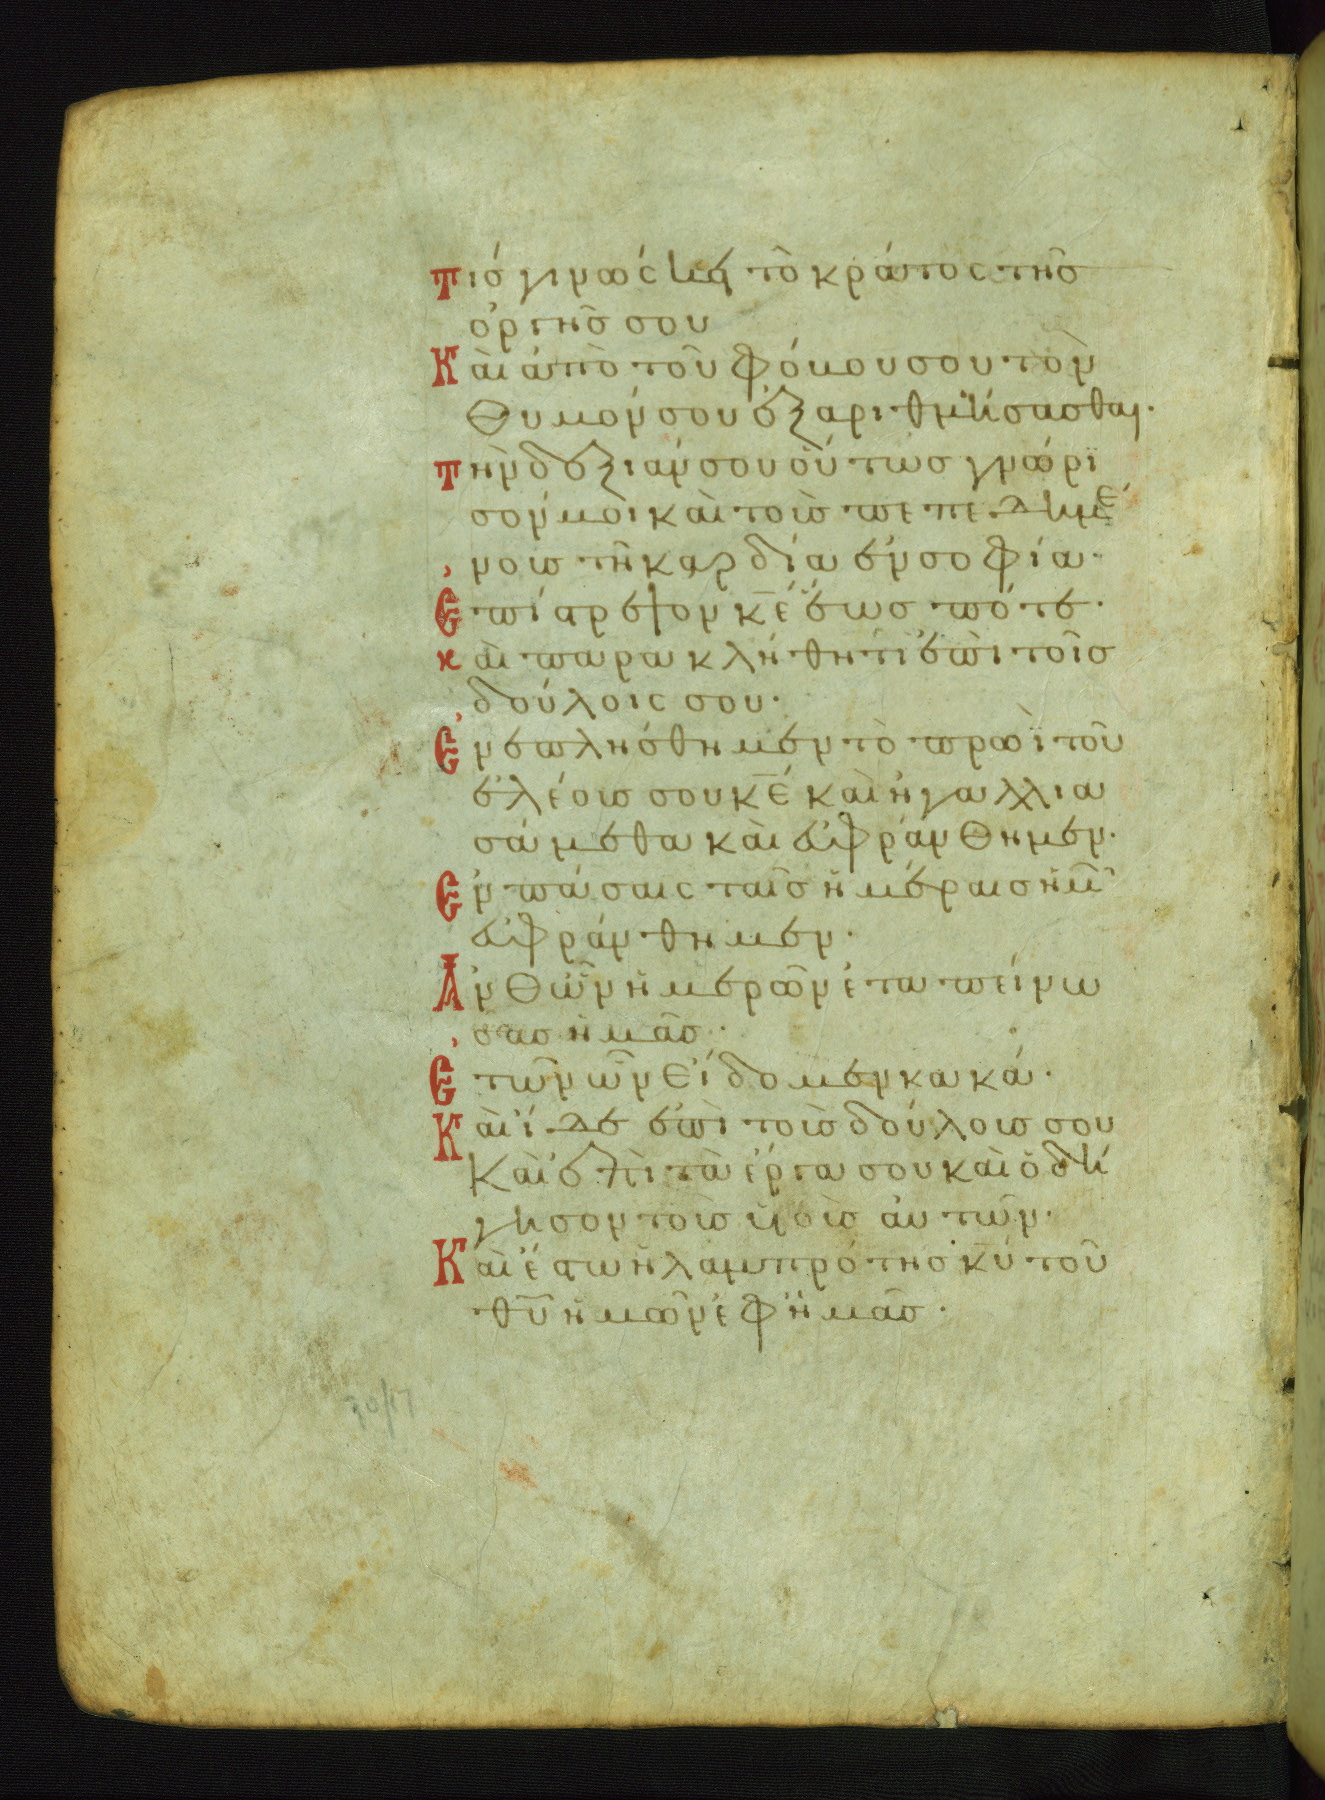 Τίσ γινώσκει τὸ κράτος τῆσ
ὀργῆσ σου
Καὶ ἀπὸ τοῦ φόβου σου τὸν
θυμόν σου ἐξαριθμήσασθαι·
Τὴν δεξιάν σου οὕτωσ γνώρι
σόν μοι καὶ τοὺσ πεπεδημέ
νουσ τῆ καρδία ἐν σοφία·
Ἐπίστρεψον κ̅ε̅ ἕωσ πότε·
καὶ παρακλήθητι ἐπὶ τοῖσ
δούλοις σου·
Ἐνεπλήσθημεν τὸ πρωῒ τοῦ
ἐλέουσ σου κ̅ε̅ καὶ ἠγαλλια
σάμεθα καὶ εὐφράνθημεν·
Ἐν πάσαις ταῖσ ἡμέραισ ἡμῶ̅
εὐφράνθημεν·
Ἀνθ ὧν ἡμερῶν ἐταπείνω
σασ ἡμᾶσ·
Ἐτῶν ὧν εἴδομεν κακά·
Καὶ ἴδε ἐπὶ τοὺσ δούλουσ σου
Καὶ ἐπὶ τὰ ἔργα σου καὶ ὁδή
γησον τοὺσ υἱοὺσ αὐτῶν·
Καὶ ἔστω ἡ λαμπρότησ κ̅υ̅ τοῦ
θ̅υ̅ ἡμῶν ἐφ ἡμᾶσ·